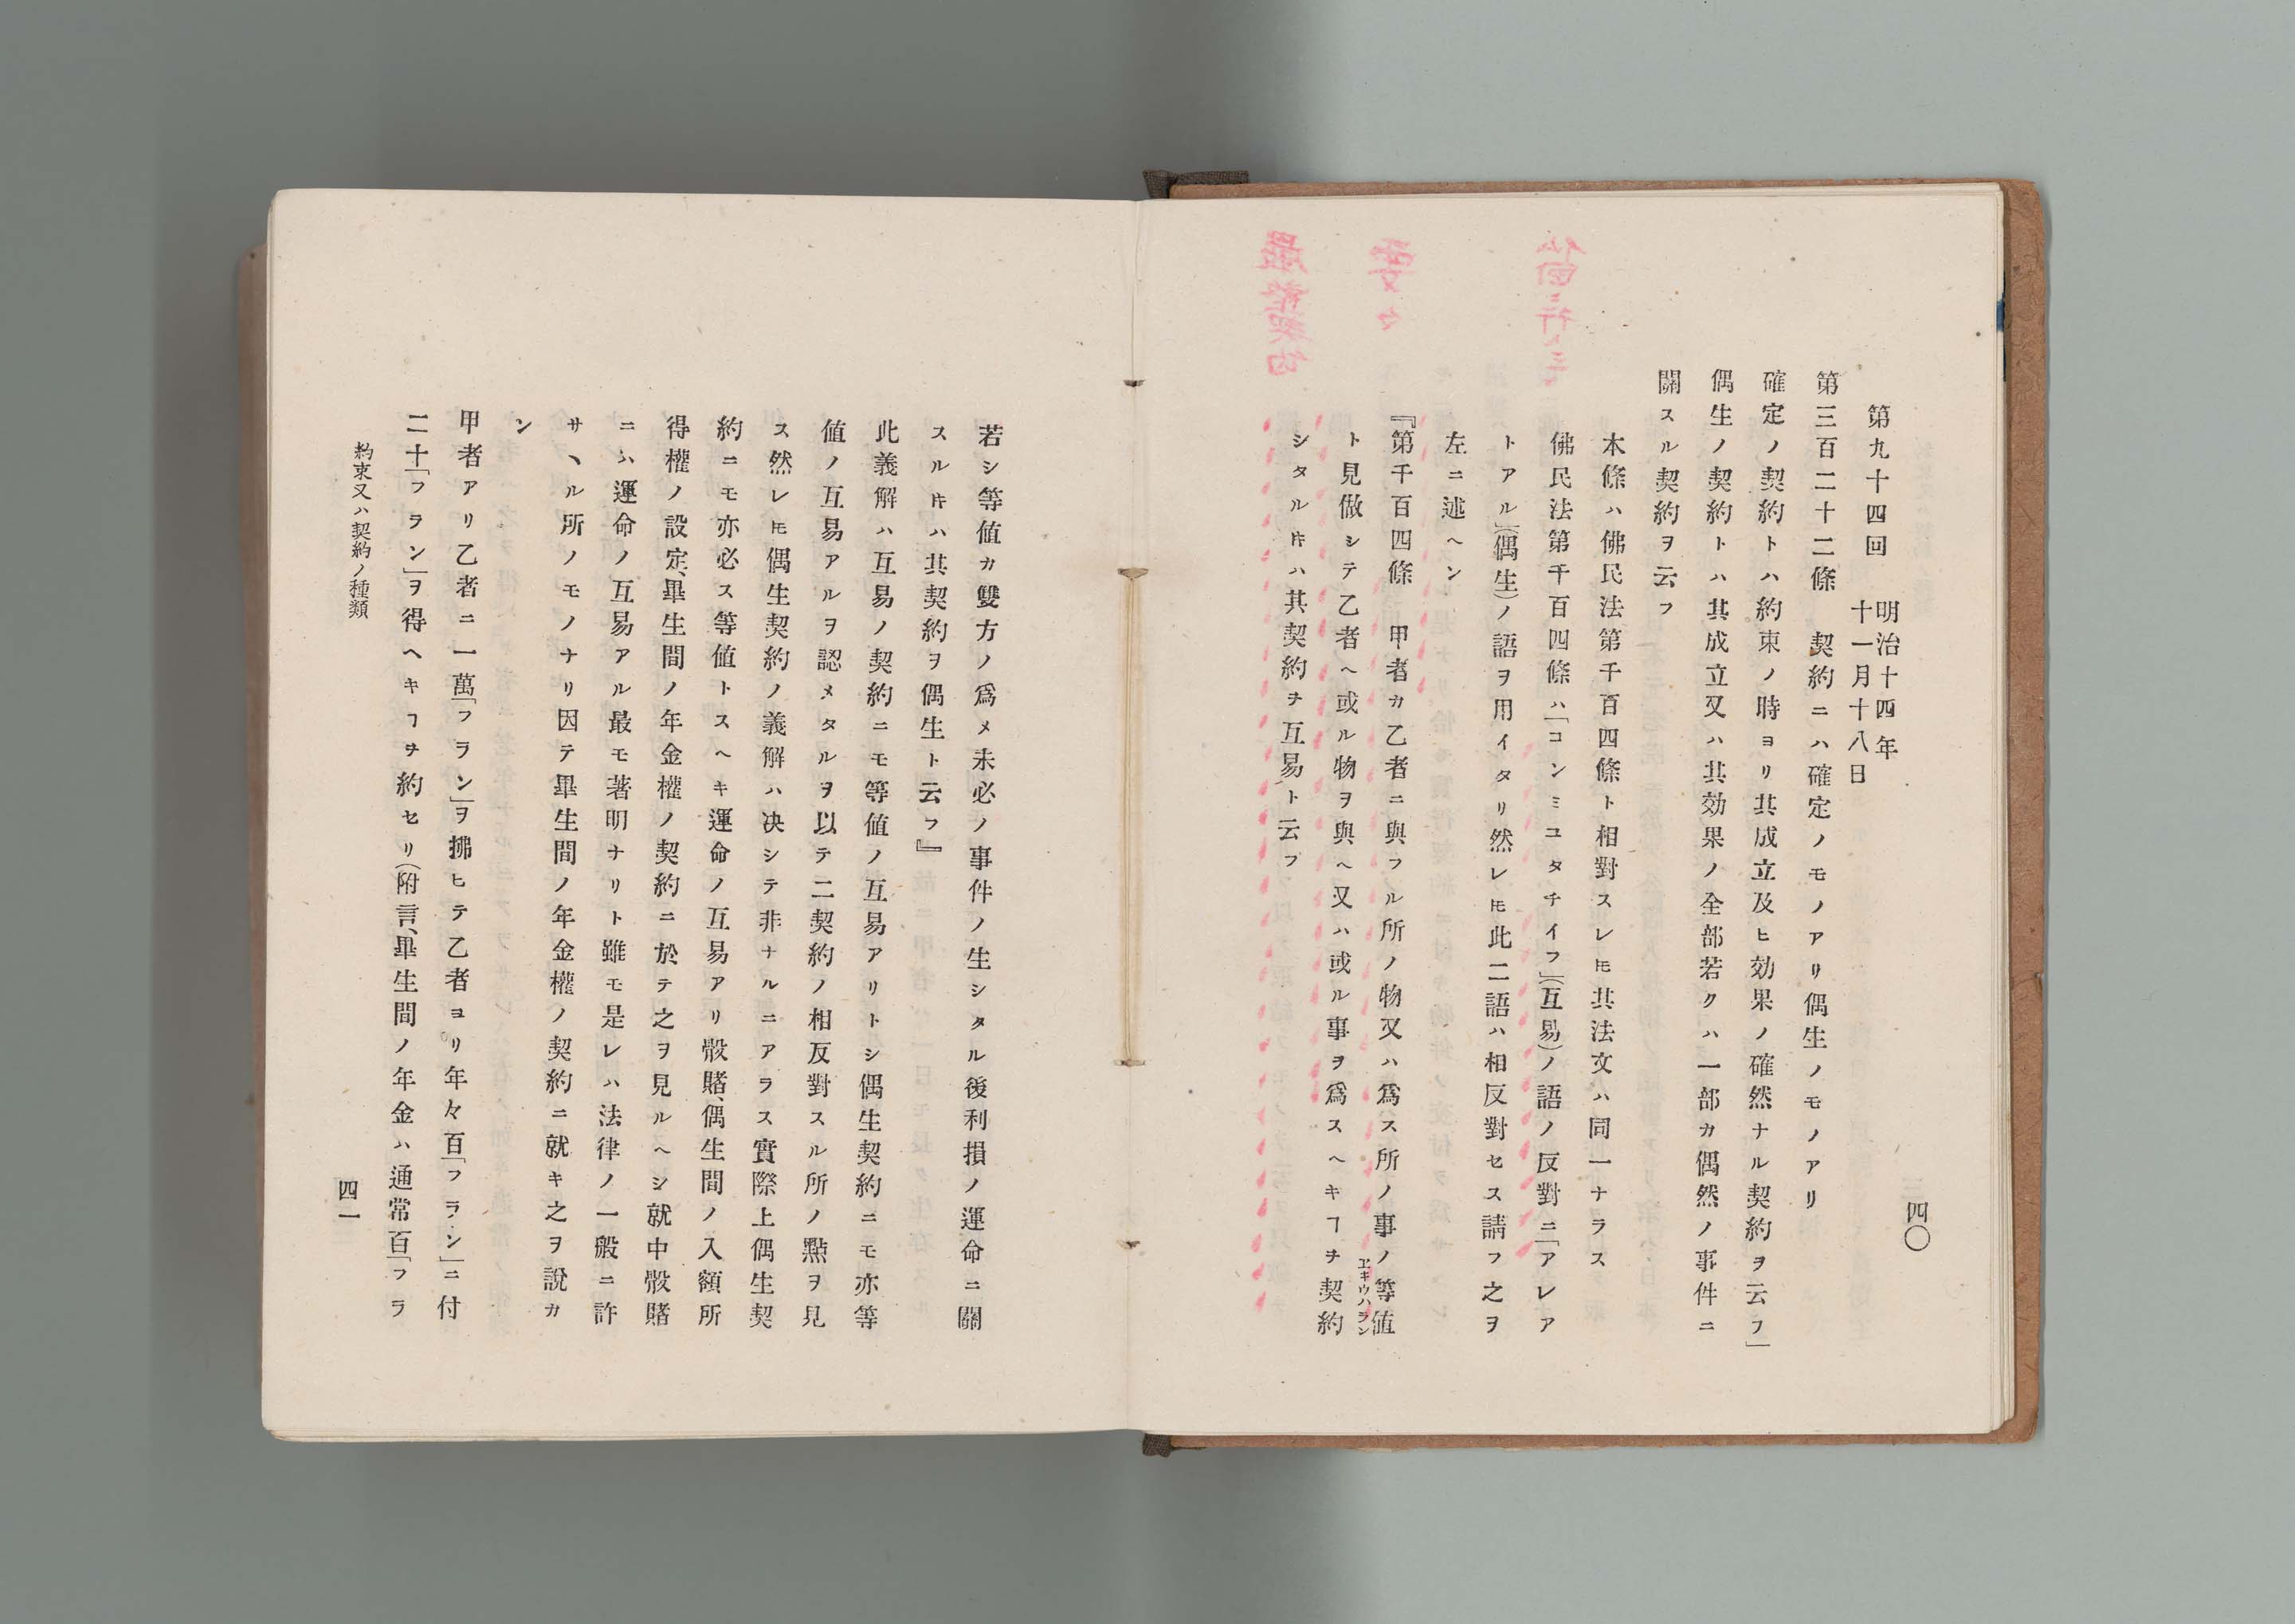 四〇
第九十四回 明治十四年
十一月十八日
第三百二十二條 契約ニハ確定ノモノアリ偶生ノモノアリ
確定ノ契約トハ約束ノ時ヨリ其成立及ヒ効果ノ確然ナル契約ヲ云フ」
偶生ノ契約トハ其成立又ハ其効果ノ全部若クハ一部カ偶然ノ事件ニ
關スル契約ヲ云フ
本條ハ佛民法第千百四條ト相對スレ𪜈其法文ハ同一ナラス
佛民法第千百四條ハ「コンミユタチイフ」(互易)ノ語ノ反對ニ「アレア
トアル」(偶生)ノ語ヲ用イタリ然レ𪜈此二語ハ相反對セス請フ之ヲ
左ニ述ヘン
『第千百四條 甲者カ乙者ニ與フル所ノ物又ハ爲ス所ノ事ノ等値
ヱキウハラン
ト見傚シテ乙者ヘ或ル物ヲ與ヘ又ハ或ル事ヲ爲スヘキヿヲ契約
シタル𪜈ハ其契約ヲ互易ト云フ
若シ等値カ雙方ノ爲メ未必ノ事件ノ生シタル後利損ノ運命ニ關
スル𪜈ハ其契約ヲ偶生ト云フ』
此義解ハ互易ノ契約ニモ等値ノ互易アリトシ偶生契約ニモ亦等
値ノ互易アルヲ認メタルヲ以テ二契約ノ相反對スル所ノ㸃ヲ見
ス然レ𪜈偶生契約ノ義解ハ决シテ非ナルニアラス實際上偶生契
約ニモ亦必ス等値トスヘキ運命ノ互易アリ骰賭、偶生間ノ入額所
得權ノ設定、畢生間ノ年金權ノ契約ニ於テ之ヲ見ルヘシ就中骰賭
ニハ運命ノ互易アル最モ著明ナリト雖モ是レハ法律ノ一般ニ許
サヽル所ノモノナリ因テ畢生間ノ年金權ノ契約ニ就キ之ヲ說カ
ン
甲者アリ乙者ニ一萬「フラン」ヲ拂ヒテ乙者ヨリ年々百「フラン」ニ付
二十「フラン」ヲ得ヘキヿヲ約セリ(附言、畢生間ノ年金ハ通常百「フラ
約束又ハ契約ノ種類
四一